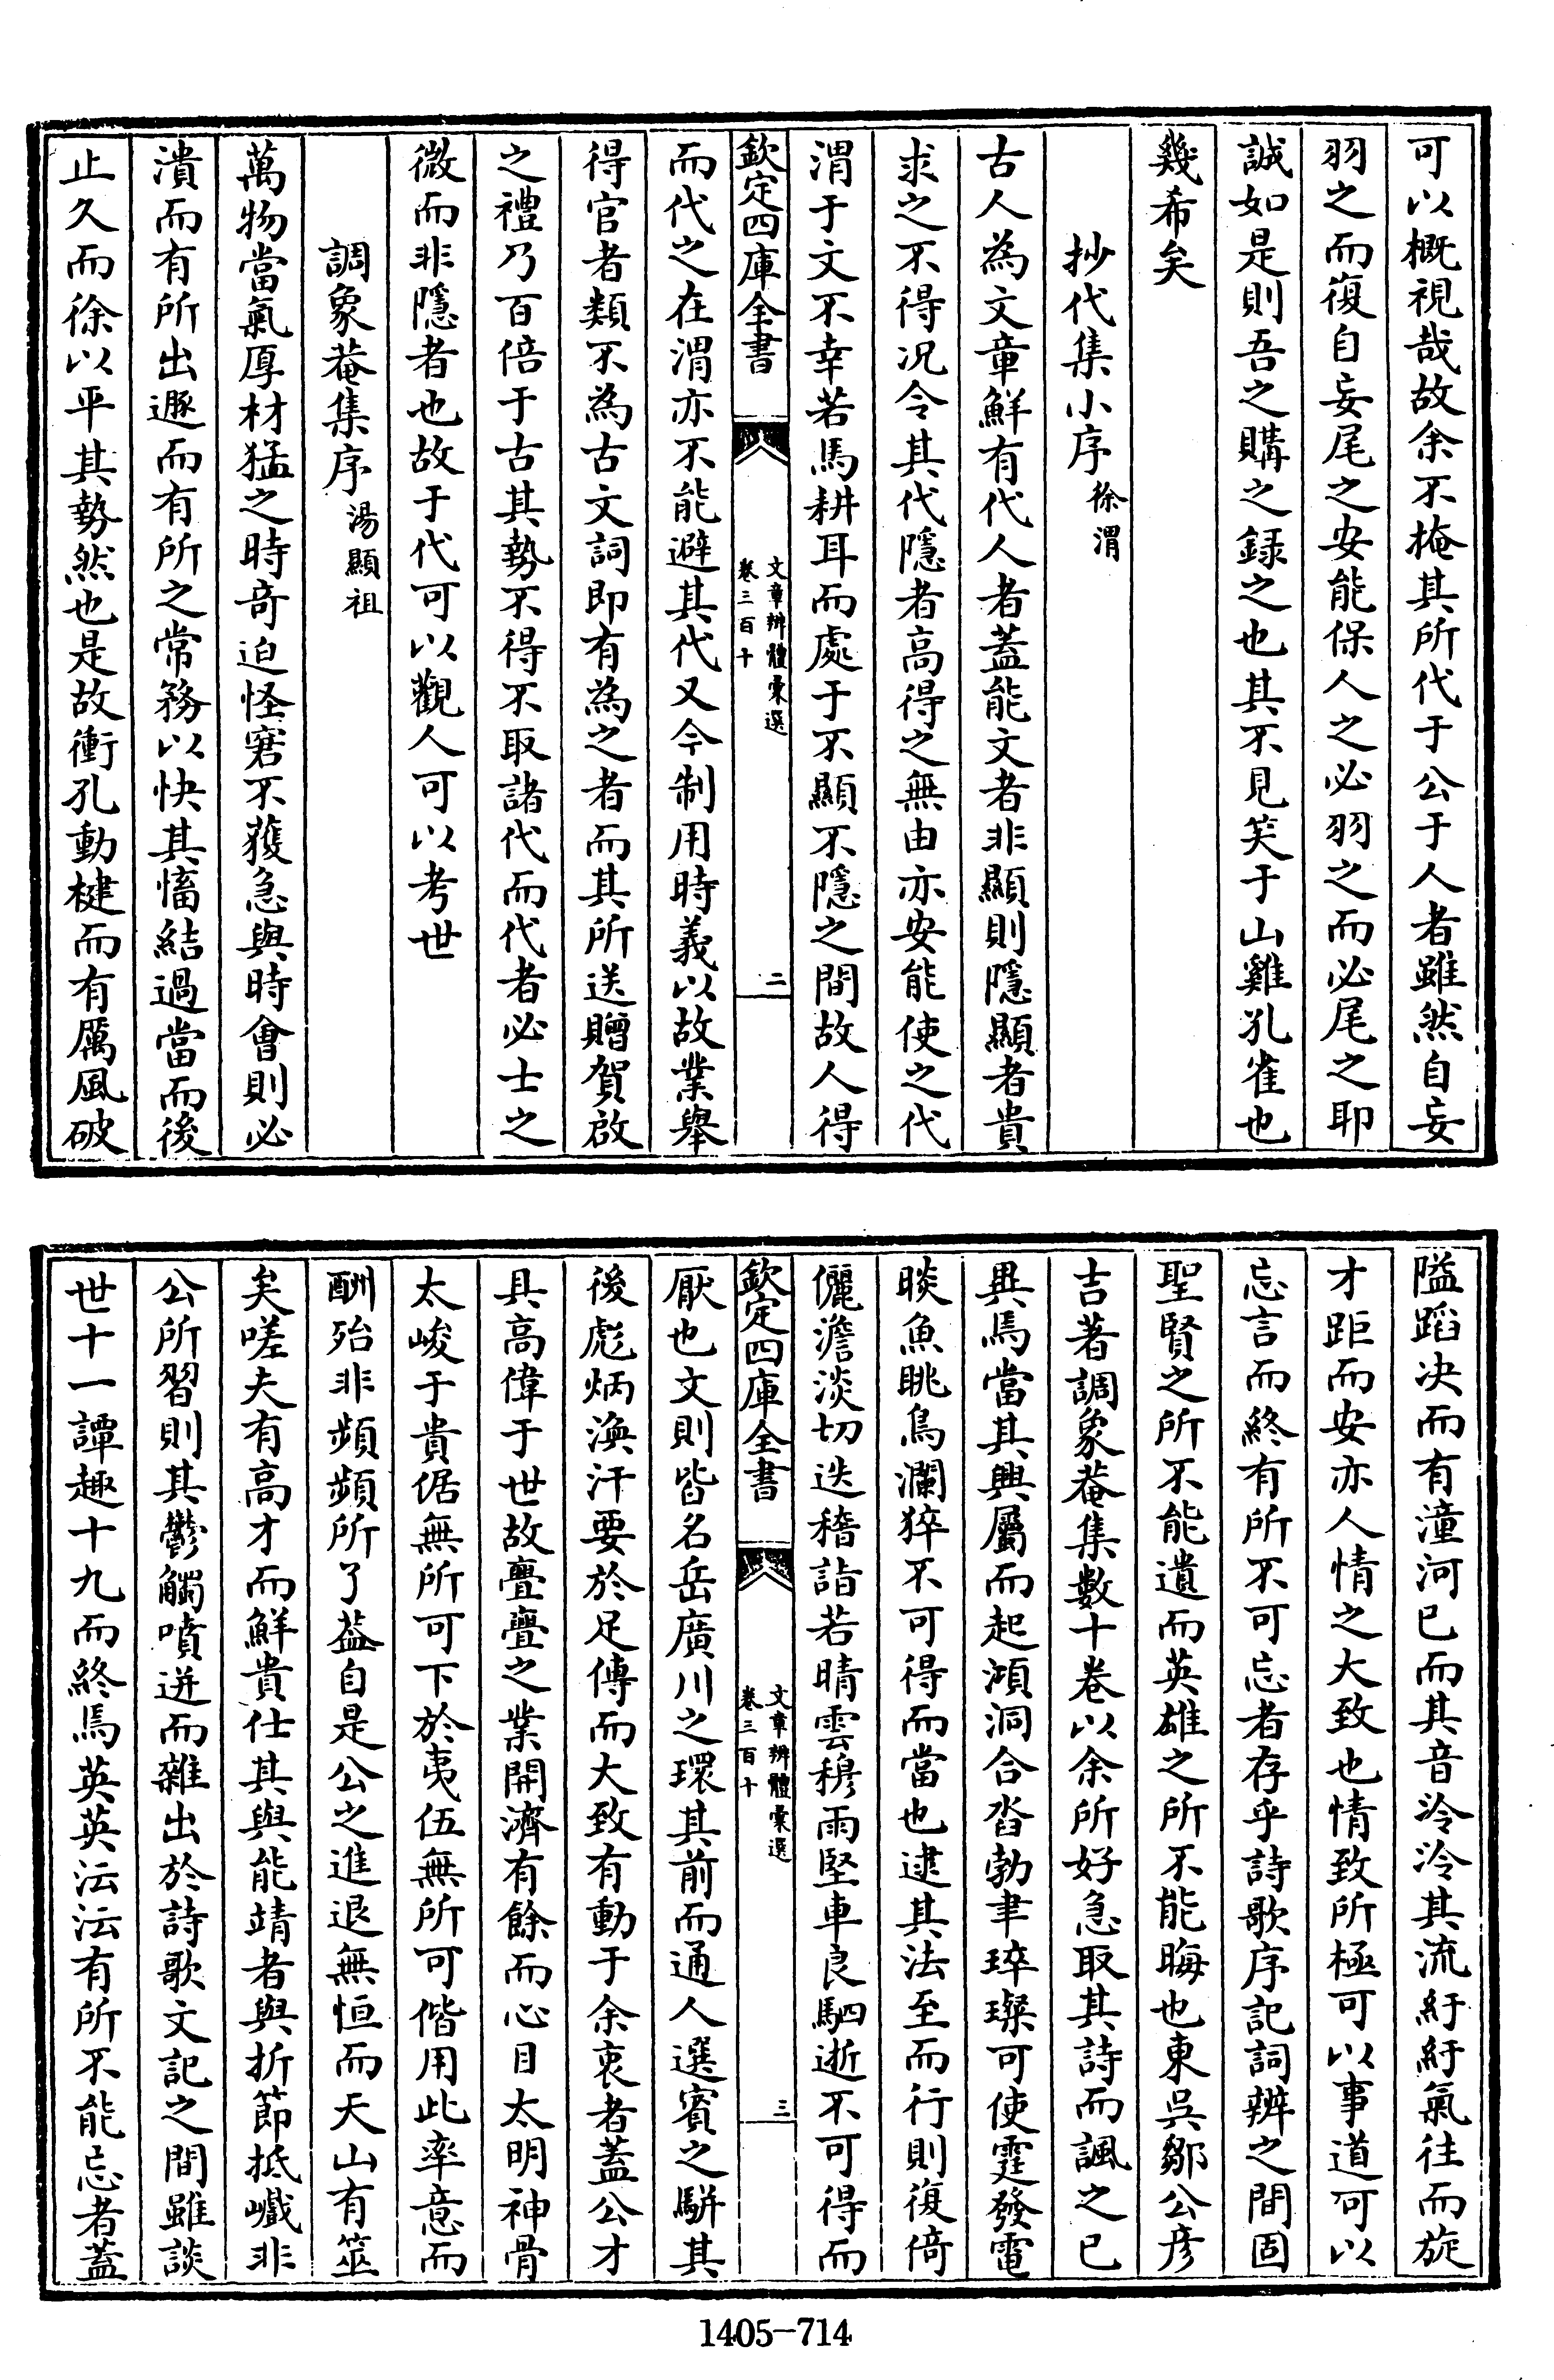 可以概視哉故余不掩其所代于公于人者雖然自妄
羽之而復自妄尾之安能保人之必羽之而必尾之耶
誠如是則吾之購之録之也其不見笑于山雞孔雀也
幾希矣
抄代集小序 徐渭
古人為文章鮮有代人者蓋能文者非顯則隱顯者貴
求之不得况令其代隱者高得之無由亦安能使之代
渭于文不幸若馬耕耳而處于不顯不隱之間故人得
欽定四庫全書
文章辨體彙選
卷三百十
二
而代之在渭亦不能避其代又今制用時義以故業舉
得官者類不為古文詞即有為之者而其所送贈賀啟
之禮乃百倍于古其勢不得不取諸代而代者必士之
微而非隱者也故于代可以觀人可以考世
調象菴集序 湯顯祖
萬物當氣厚材猛之時奇迫怪窘不獲急與時會則必
潰而有所出遯而有所之常務以快其慉結過當而後
止久而徐以平其勢然也是故衝孔動楗而有厲風破
隘蹈决而有潼河已而其音泠泠其流紆紆氣往而旋
才距而安亦人情之大致也情致所極可以事道可以
忘言而終有所不可忘者存乎詩歌序記詞辨之間固
聖賢之所不能遺而英雄之所不能晦也東吳鄒公彦
吉著調象菴集數十卷以余所好急取其詩而諷之已
異焉當其興屬而起澒洞合沓勃聿琗璨可使霆發電
睒魚眺鳥瀾猝不可得而當也逮其法至而行則復倚
儷澹淡切迭稽詣若晴雲穆雨堅車良駟逝不可得而
欽定四庫全書
文章辨體彙選
卷三百十
三
厭也文則皆名岳廣川之環其前而通人選賓之駢其
後彪炳渙汗要於足傳而大致有動于余衷者蓋公才
具高偉于世故亹亹之業開濟有餘而心目太明神骨
太峻于貴倨無所可下於夷伍無所可偕用此率意而
酬殆非頻頻所了葢自是公之進退無恒而天山有筮
矣嗟夫有高才而鮮貴仕其與能靖者與折節抵巇非
公所習則其鬱觸噴迸而雜出於詩歌文記之間雖談
世十一譚趣十九而終焉英英沄沄有所不能忘者蓋
1405-714